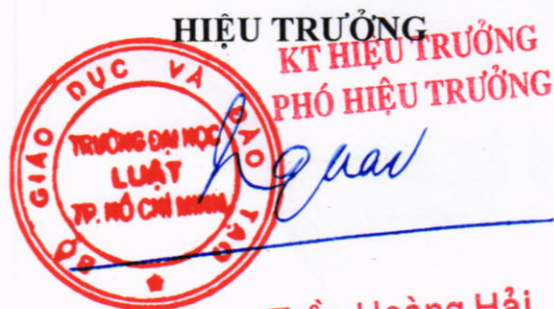 HIỆU TRƯỞNG
KT HIỆU TRƯỞNG
PHÓ HIỆU TRƯỞNG
BỘ GIÁO DỤC VÀ ĐÀO TẠO
TRƯỜNG ĐẠI HỌC
LUẬT
TP. HỒ CHÍ MINH
Trần Hoàng Hải